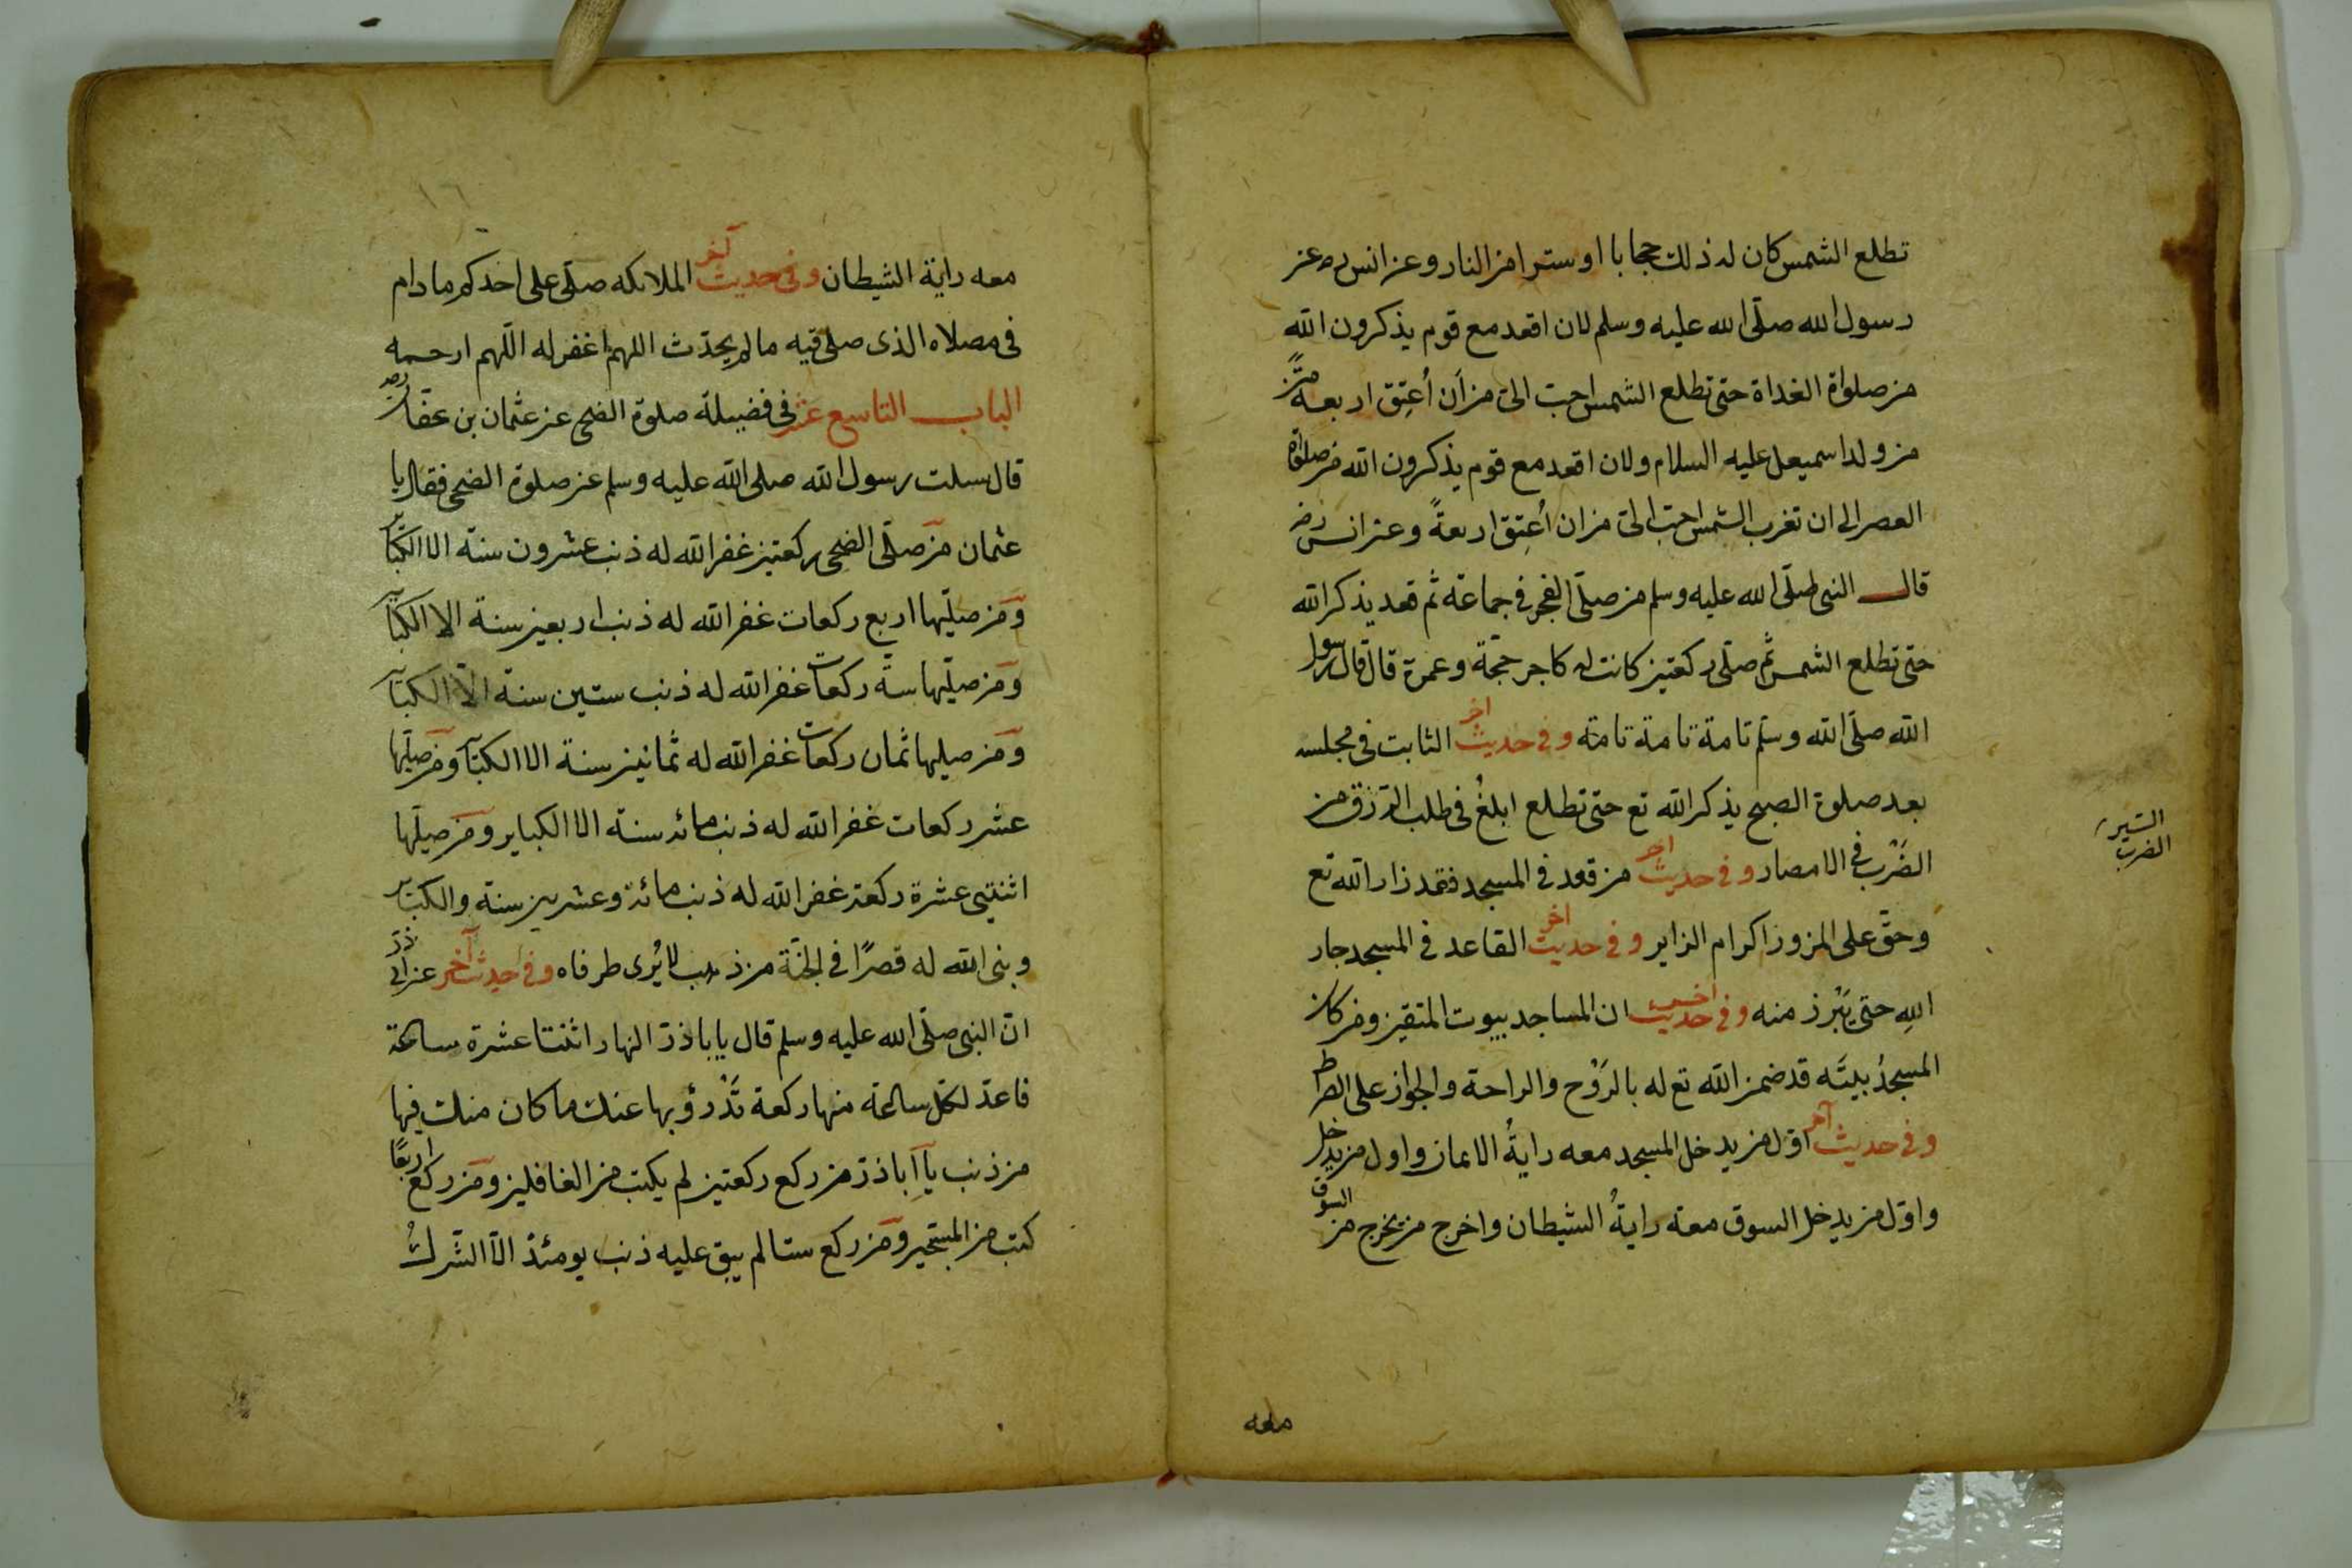 تطلع الشمس كان له ذلك حجابا او سترا من النار وعن انس رض عن
رسول الله صلى الله عليه وسلم لان اقعد مع قوم يذكرون الله
من صلواة الغداة حتى تطلع الشمس احب الى من أن أعتِق اربعةً
من ولد اسمعيل عليه السلام ولان اقعد مع قوم يذكرون الله من صلواة
العصر الى ان تغرب الشمس احب الى من ان أعتِق اربعةً وعن انس رض
قال النبى صلى الله عليه وسلم من صلى الفجر فى جماعة ثم قعد يذكر الله
حتى تطلع الشمس ثم صلى ركعتين كانت له كاجر حجّة وعمرة قال قال رسول
الله صلى الله وسلم تامة تامة تامة وفى حديث اخر الثابت فى مجلسه
بعد صلوة الصبح يذكر الله تع حتى تطلع ابلغُ فى طلب الرزق من
الضَرْب فى الامصار وفى حديث اخر من قعد فى المسجد فقد زار الله تع
وحقّ على المزور اكرام الزاير وفى حديث اخر القاعد فى المسجد جار
اللهِ حتى يَبْرز منه وفى حديث اخر ان المساجد بيوت المتقين ومن كان
المسجدُ بيتَه قد ضمن الله تع له بالرَوْح والراحة والجواز على الصراط
وفى حديث آخر اوّل من يدخل المسجد معه رايةُ الايمان واول من يدخل
واوّل من يدخل السوق معه رايةُ الشيطان واخرج من يخرج من السوق
السّير
الضرب
معه
١٦
معه راية الشيطان وفى حديث آخر الملائكه صلّى على احدكم مادام
فى مصلاه الذى صلى فيه مالم يحدّث اللهم اغفر له اللّهم ارحمه
الباب التاسع عشر فى فضيلة صلوة الضحى عن عثمان بن عفان رض
قال سلت رسول الله صلى الله عليه وسلم عن صلوة الضحى فقال يا
عثمان من صلّى الضحى ركعتين غفر الله له ذنب عشرون سنة الا الكبائر
ومن صليّها اربع ركعات غفر الله له ذنب اربعين سنة الا الكبائر
ومن صليّها ستة ركعات غفر الله له ذنب ستين سنة الاّ الكبائر
ومن صليها ثمان ركعات غفر الله له ثمانين سنة الا الكبائر ومن صليّها
عشر ركعات غفر الله له ذنب مائه سنة الا الكباير ومن صليّها
اثنتى عشرة ركعة غفر الله له ذنب مائة وعشرين سنة والكبائر
وبنى الله له قصرًا فى الجنّة من ذهب لا يُرى طرفاه وفى احديث آخر عن ابى ذرّ
انّ النبى صلّى الله عليه وسلم قال يا باذرّ النهار اثنتا عشرة ساعة
فاعدّ لكل ساعة منها ركعة تَدْرؤ بها عنك ما كان منك فيها
من ذنب يا آباذرّ من ركع ركعتين لم يكتب من الغافلين ومن ركع اربعًا
كتب من المستجير ومن ركع ستا لم يبق عليه ذنب يومئذ الاّ الشرك